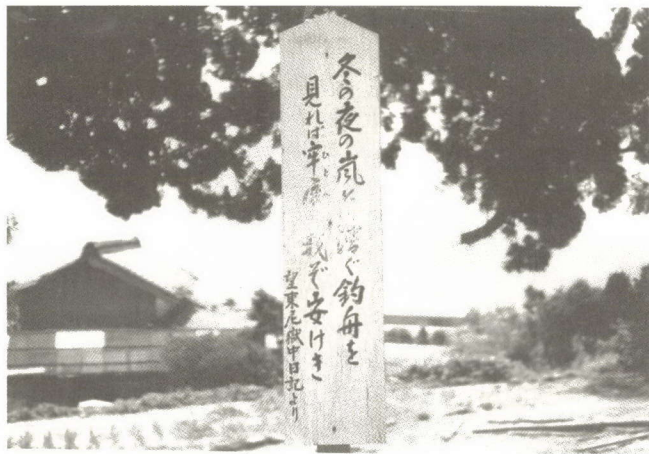 冬の夜の嵐に騒ぐ釣舟を
見れば牢屋の我ぞ安けき
望東尼獄中日記より